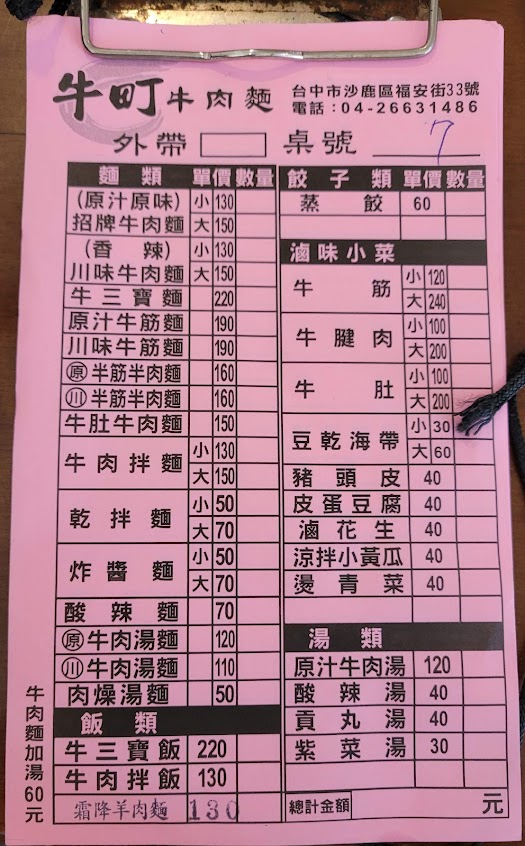 牛町牛肉麵
台中市沙鹿區福安街33號
電話：04-26631486
外帶 桌號 7
麵類 單價 數量
(原汁原味) 招牌牛肉麵 小 130
大 150
(香辣) 川味牛肉麵 小 130
大 150
牛三寶麵 220
原汁牛筋麵 190
川味牛筋麵 190
原 半筋半肉麵 160
川 半筋半肉麵 160
牛肚牛肉麵 150
牛肉拌麵 小 130
大 150
乾拌麵 小 50
大 70
炸醬麵 小 50
大 70
酸辣麵 70
原 牛肉湯麵 120
川 牛肉湯麵 110
肉燥湯麵 50
飯類
牛三寶飯 220
牛肉拌飯 130
霜降羊肉麵 130
牛肉麵加湯60元
餃子類 單價 數量
蒸餃 60
滷味小菜
牛筋 小 120
大 240
牛腱肉 小 100
大 200
牛肚 小 100
大 200
豆乾海帶 小 30
大 60
豬頭皮 40
皮蛋豆腐 40
滷花生 40
涼拌小黃瓜 40
燙青菜 40
湯類
原汁牛肉湯 120
酸辣湯 40
貢丸湯 40
紫菜湯 30
總計金額 元